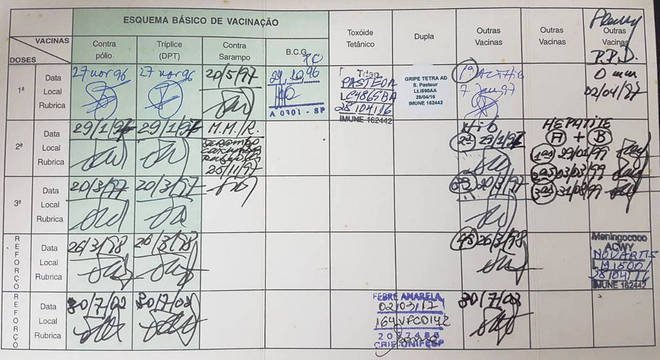 ESQUEMA BÁSICO DE VACINAÇÃO
VACINAS
DOSES
Contra pólio
Tríplice (DPT)
Contra Sarampo
B.C.G.
Toxóide Tetânico
Dupla
Outras Vacinas
Outras Vacinas
Outras Vacinas
P.P.D.
1ª
Data
Local
Rubrica
27 nov 96
27 nov 96
20/5/97
A 0901 - SP
PASTEUR
28/04/16
IMUNE 162442
GRIPE TETRA AD
S. Pasteur
28/04/16
IMUNE 162442
1ª ACTHIB
7 Jan/97
0 mm
02/04/97
2ª
Data
Local
Rubrica
29/1/97
29/1/97
M.M.R.
SARAMPO
CAXUMBA
RUBÉOLA
20/11/97
HiB
2ª 29/1/97
HEPATITE
A + B
1ª 29/01/99
2ª 03/03/99
3ª 31/08/99
3ª
Data
Local
Rubrica
20/3/97
20/3/97
3ª 20/3/97
REFORÇO
Data
Local
Rubrica
26/3/98
26/3/98
4ª 26/3/98
Meningococo
ACWY
NOVARTIS
M 1500
28/04/16
IMUNE 162442
REFORÇO
Data
Local
Rubrica
30/7/02
30/7/02
FEBRE AMARELA
02/03/17
164VFC014Z
2027480
CRIE UNIFESP
30/7/02